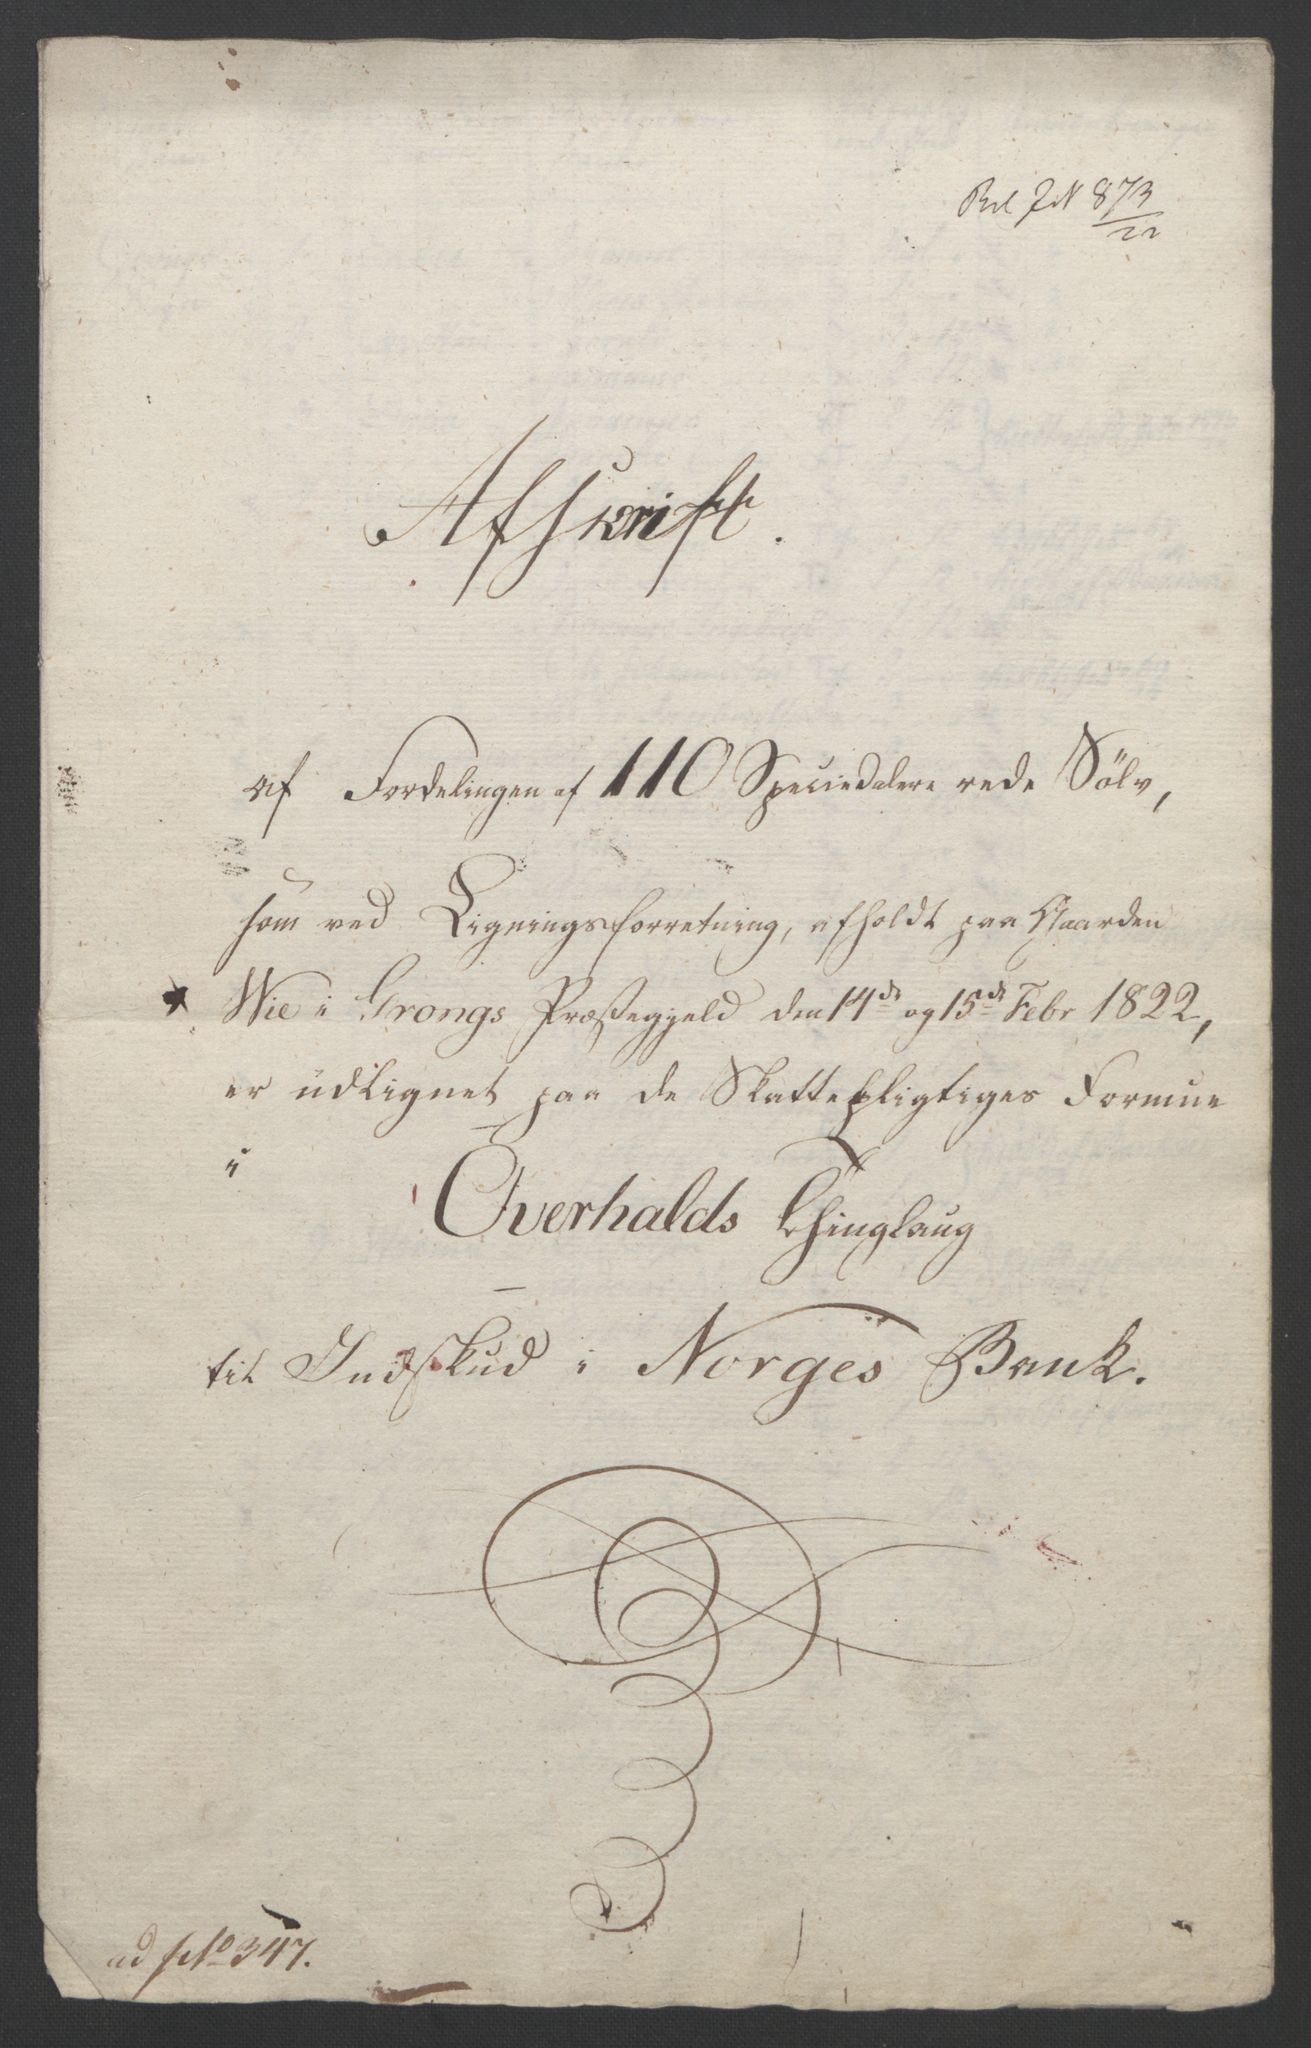 873
22
Afskrift.
af Fordelingen af 110 Speciedalere rede Sölv,
som ved Ligningsforretning, afholdt paa Gaarden
Wie i Grongs Præstegjeld den 14de og 15de Febr 1822,
er udlignet paa de Skattepligtiges Formue
i
Overhalds Thinglaug
til Indskud i Norges Bank.
ad No 347.